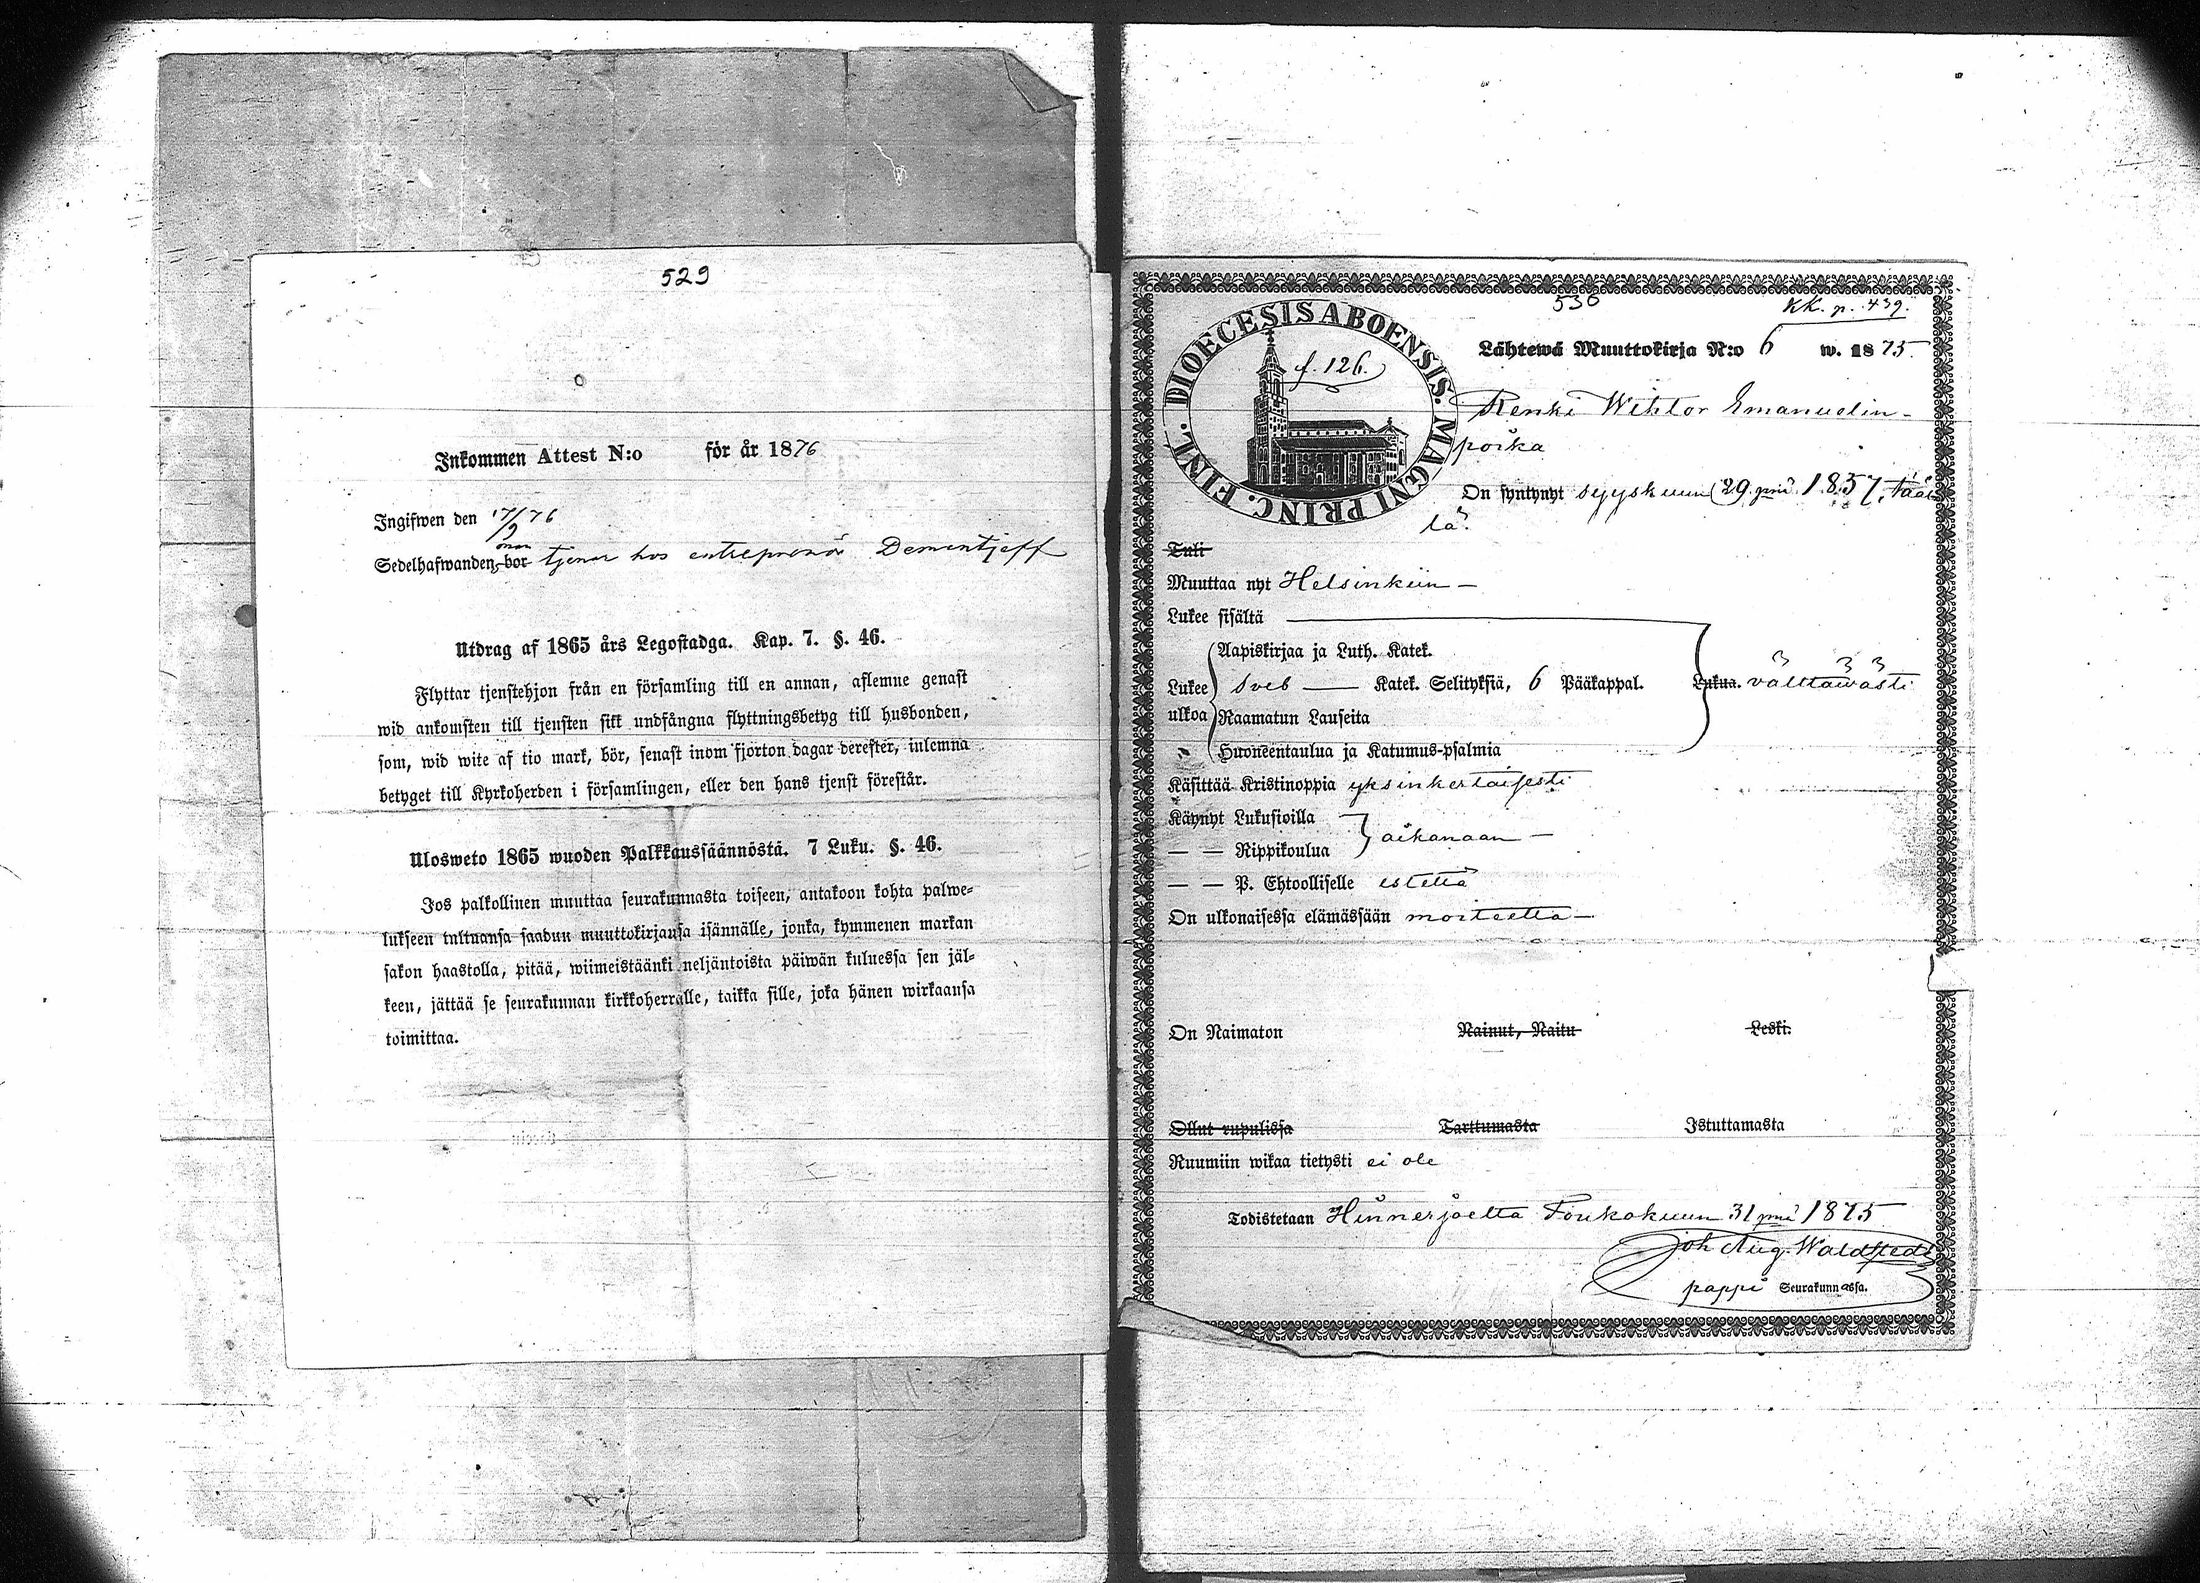 529
Inkommen Attest N:o för år 1876
Ingifwen den 17/9 76
Sedelhafwanden bor tjenar hos entreprenör Dementjeff
Utdrag af 1865 års Legostadga. Kap. 7. §. 46.
Flyttar tjenstehjon från en församling till en annan, aflemne genast
wid ankomsten till tjensten sitt undfångna flyttningsbetyg till husbonden,
som, wid wite af tio mark, bör, senast inom fjorton dagar derefter, inlemna
betyget till Kyrkoherden i församlingen, eller den hans tjenst förestår.
Ulosweto 1865 wuoden Palkkaussäännöstä. 7 Luku. §. 46.
Jos palkollinen muuttaa seurakunnasta toiseen, antakoon kohta palwe-
lukseen tultuansa saadun muuttokirjansa isännälle, jonka, kymmenen markan
sakon haastolla, pitää, wiimeistäänki neljäntoista päiwän kuluessa sen jäl-
keen, jättää se seurakunnan kirkkoherralle, taikka sille, joka hänen wirkaansa
toimittaa.
530
KK. p. 439.
DIOECESIS ABOENSIS. MAGNI PRINC. FINL.
f. 126.
Lähtewä Muuttokirja N:o 6 w. 1875.
Renki Wihtor Emanuelin-
poika
On syntynyt syyskuun 29 pnä 1857, tääl
lä.
Tuli
Muuttaa nyt Helsinkiin —
Lukee sisältä
Aapiskirjaa ja Luth. Katek.
Lukee Sveb — Katek. Selityksiä, 6 Pääkappal. Lukua. välttäwästi
ulkoa Raamatun Lauseita
Huoneentaulua ja Katumus-psalmia
Käsittää Kristinoppia yksinkertaisesti
Käynyt Lukusioilla
aikanaan —
— — Rippikoulua
— — P. Ehtoolliselle estettä
On ulkonaisessa elämässään moiteetta —
On Naimaton Nainut, Naitu Leski.
Ollut rupulissa Tarttumasta Istuttamasta
Ruumiin wikaa tietysti ei ole
Todistetaan Hinnerjoelta Toukokuun 31 pnä 1875
Joh Aug. Waldstedt
pappi Seurakunnassa.